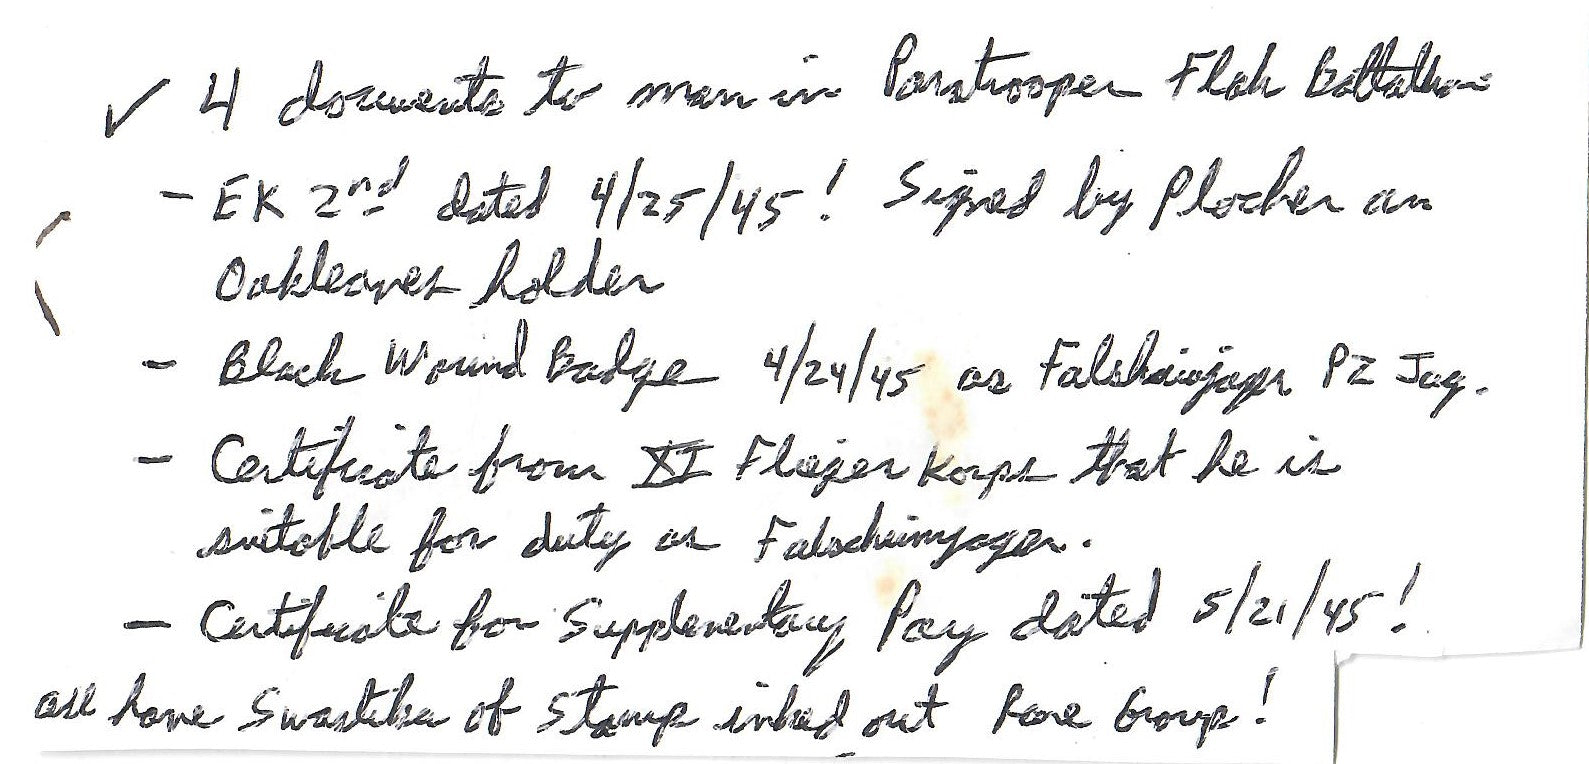 ✓ 4 documents to man in Paratrooper Flak Battalion
- EK 2nd dated 4/25/45! Signed by Plocher an
Oakleaves holder
- Black Wound Badge 4/24/45 as Falshirmjager PZ Jag.
- Certificate from XI Flieger Korps that he is
suitable for duty as Falschirmjager.
- Certificate for Supplementary Pay dated 5/21/45!
all have Swastika of Stamp inked out Rare Group!